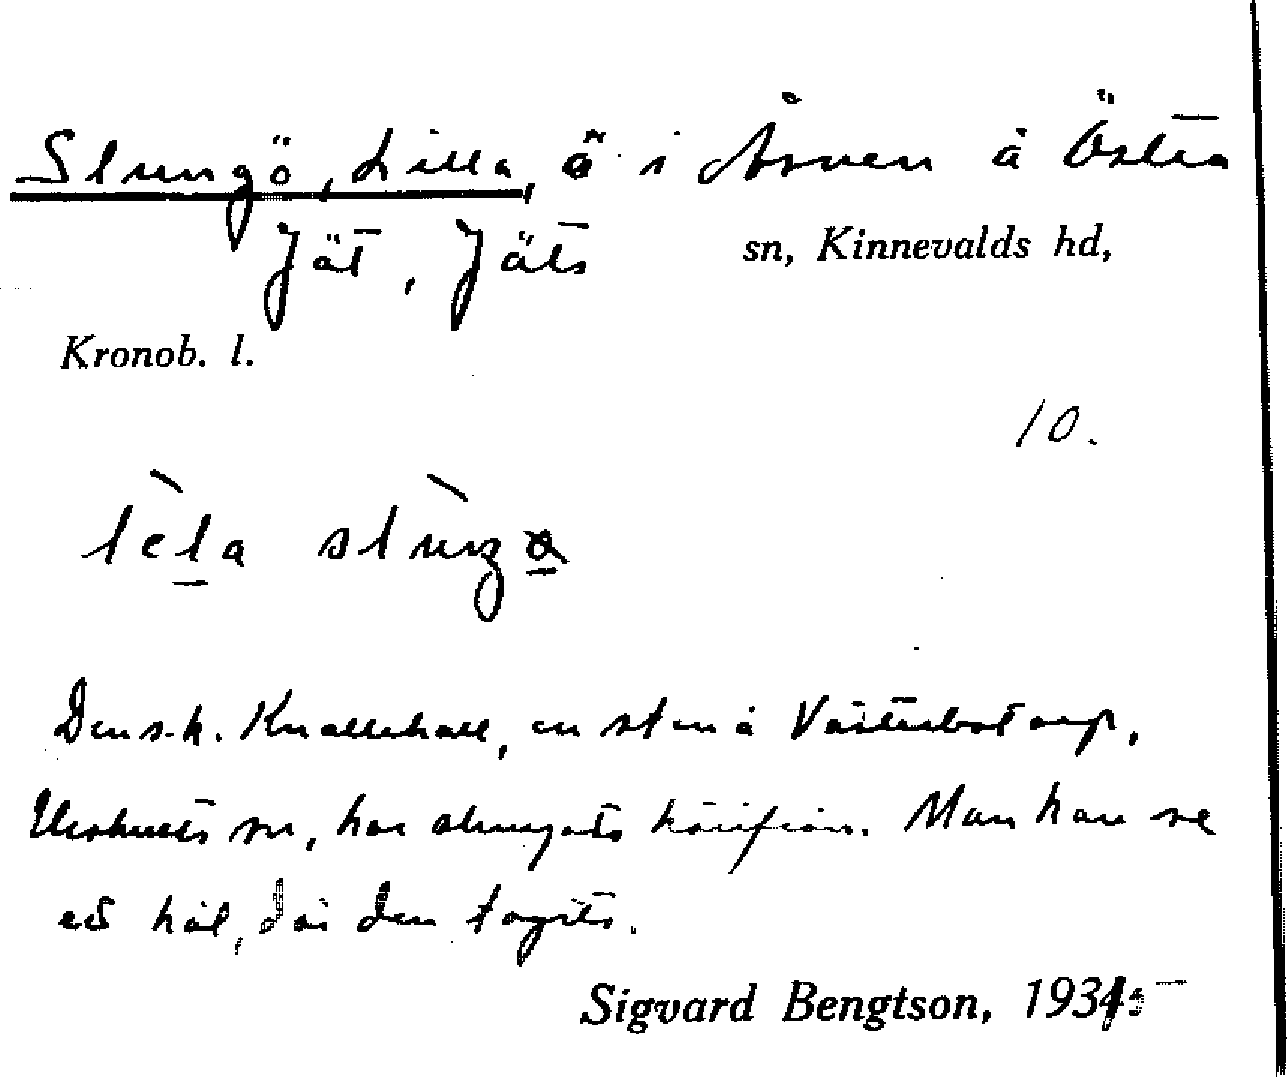 Slungö, Lilla, ö i Åsnen å Östra
Jät, Jäts sn, Kinnevalds hd,
Kronob. l.
10.
lèla slùŋgö
Den s.k. Knallehall, en sten å Västerbotorp,
Urshults sn, har slungats härifrån. Man kan se
ett hål, där den tagits.
Sigvard Bengtson, 1935